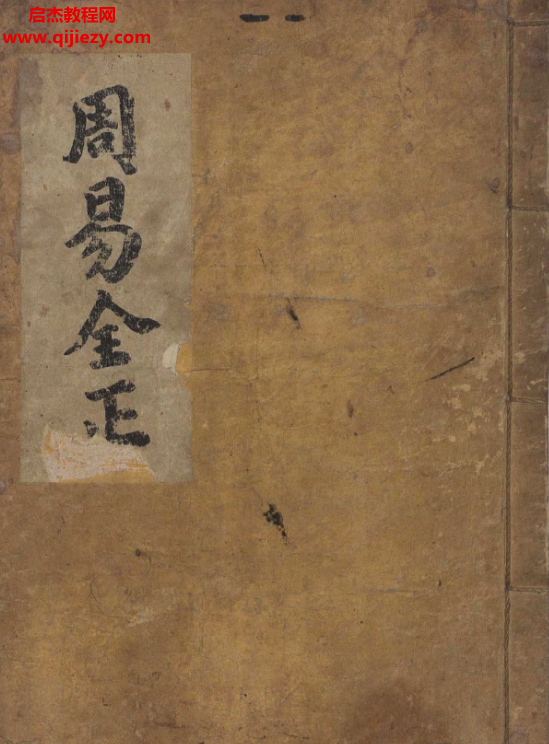 启杰教程网
www.qijiezy.com
周易全正